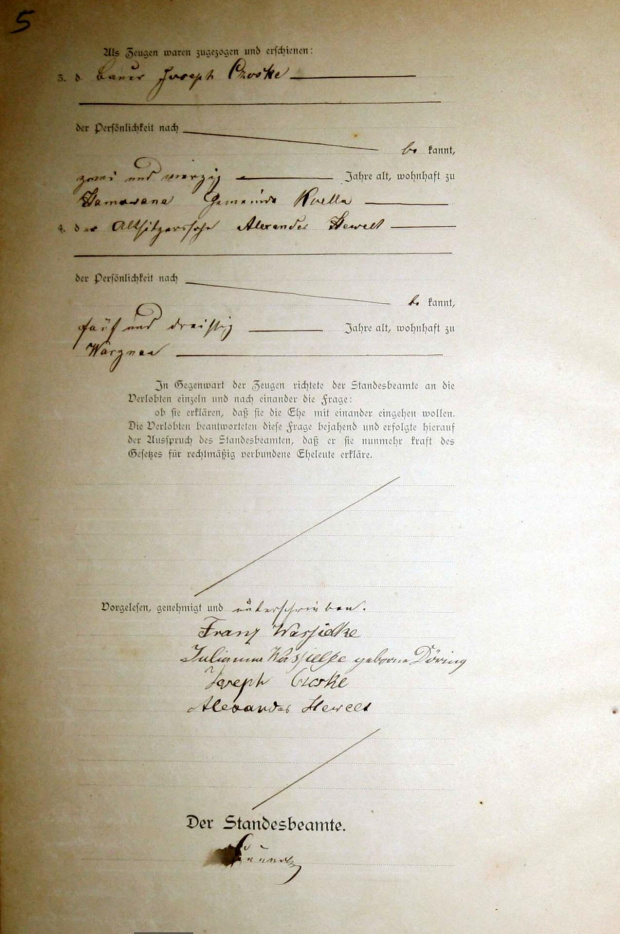 5
Als Zeugen waren zugezogen und erschienen:
3. d. Bauer Joseph
der Persönlichkeit nach
be kannt,
zwei und vierzig Jahre alt, wohnhaft zu
Gemeinde Koelln
4. der Alexander Hewelt
der Persönlichkeit nach
be kannt,
fünf und dreißig Jahre alt, wohnhaft zu
Warznau
In Gegenwart der Zeugen richtete der Standesbeamte an die
Verlobten einzeln und nach einander die Frage:
ob sie erklären, daß sie die Ehe mit einander eingehen wollen.
Die Verlobten beantworteten diese Frage bejahend und erfolgte hierauf
der Ausspruch des Standesbeamten, daß er sie nunmehr kraft des
Gesetzes für rechtmäßig verbundene Eheleute erkläre.
Vorgelesen, genehmigt und unterschrieben.
Franz Wassielke
Julianna Wassielke geborne Döring
Joseph
Alexander Hewelt
Der Standesbeamte.